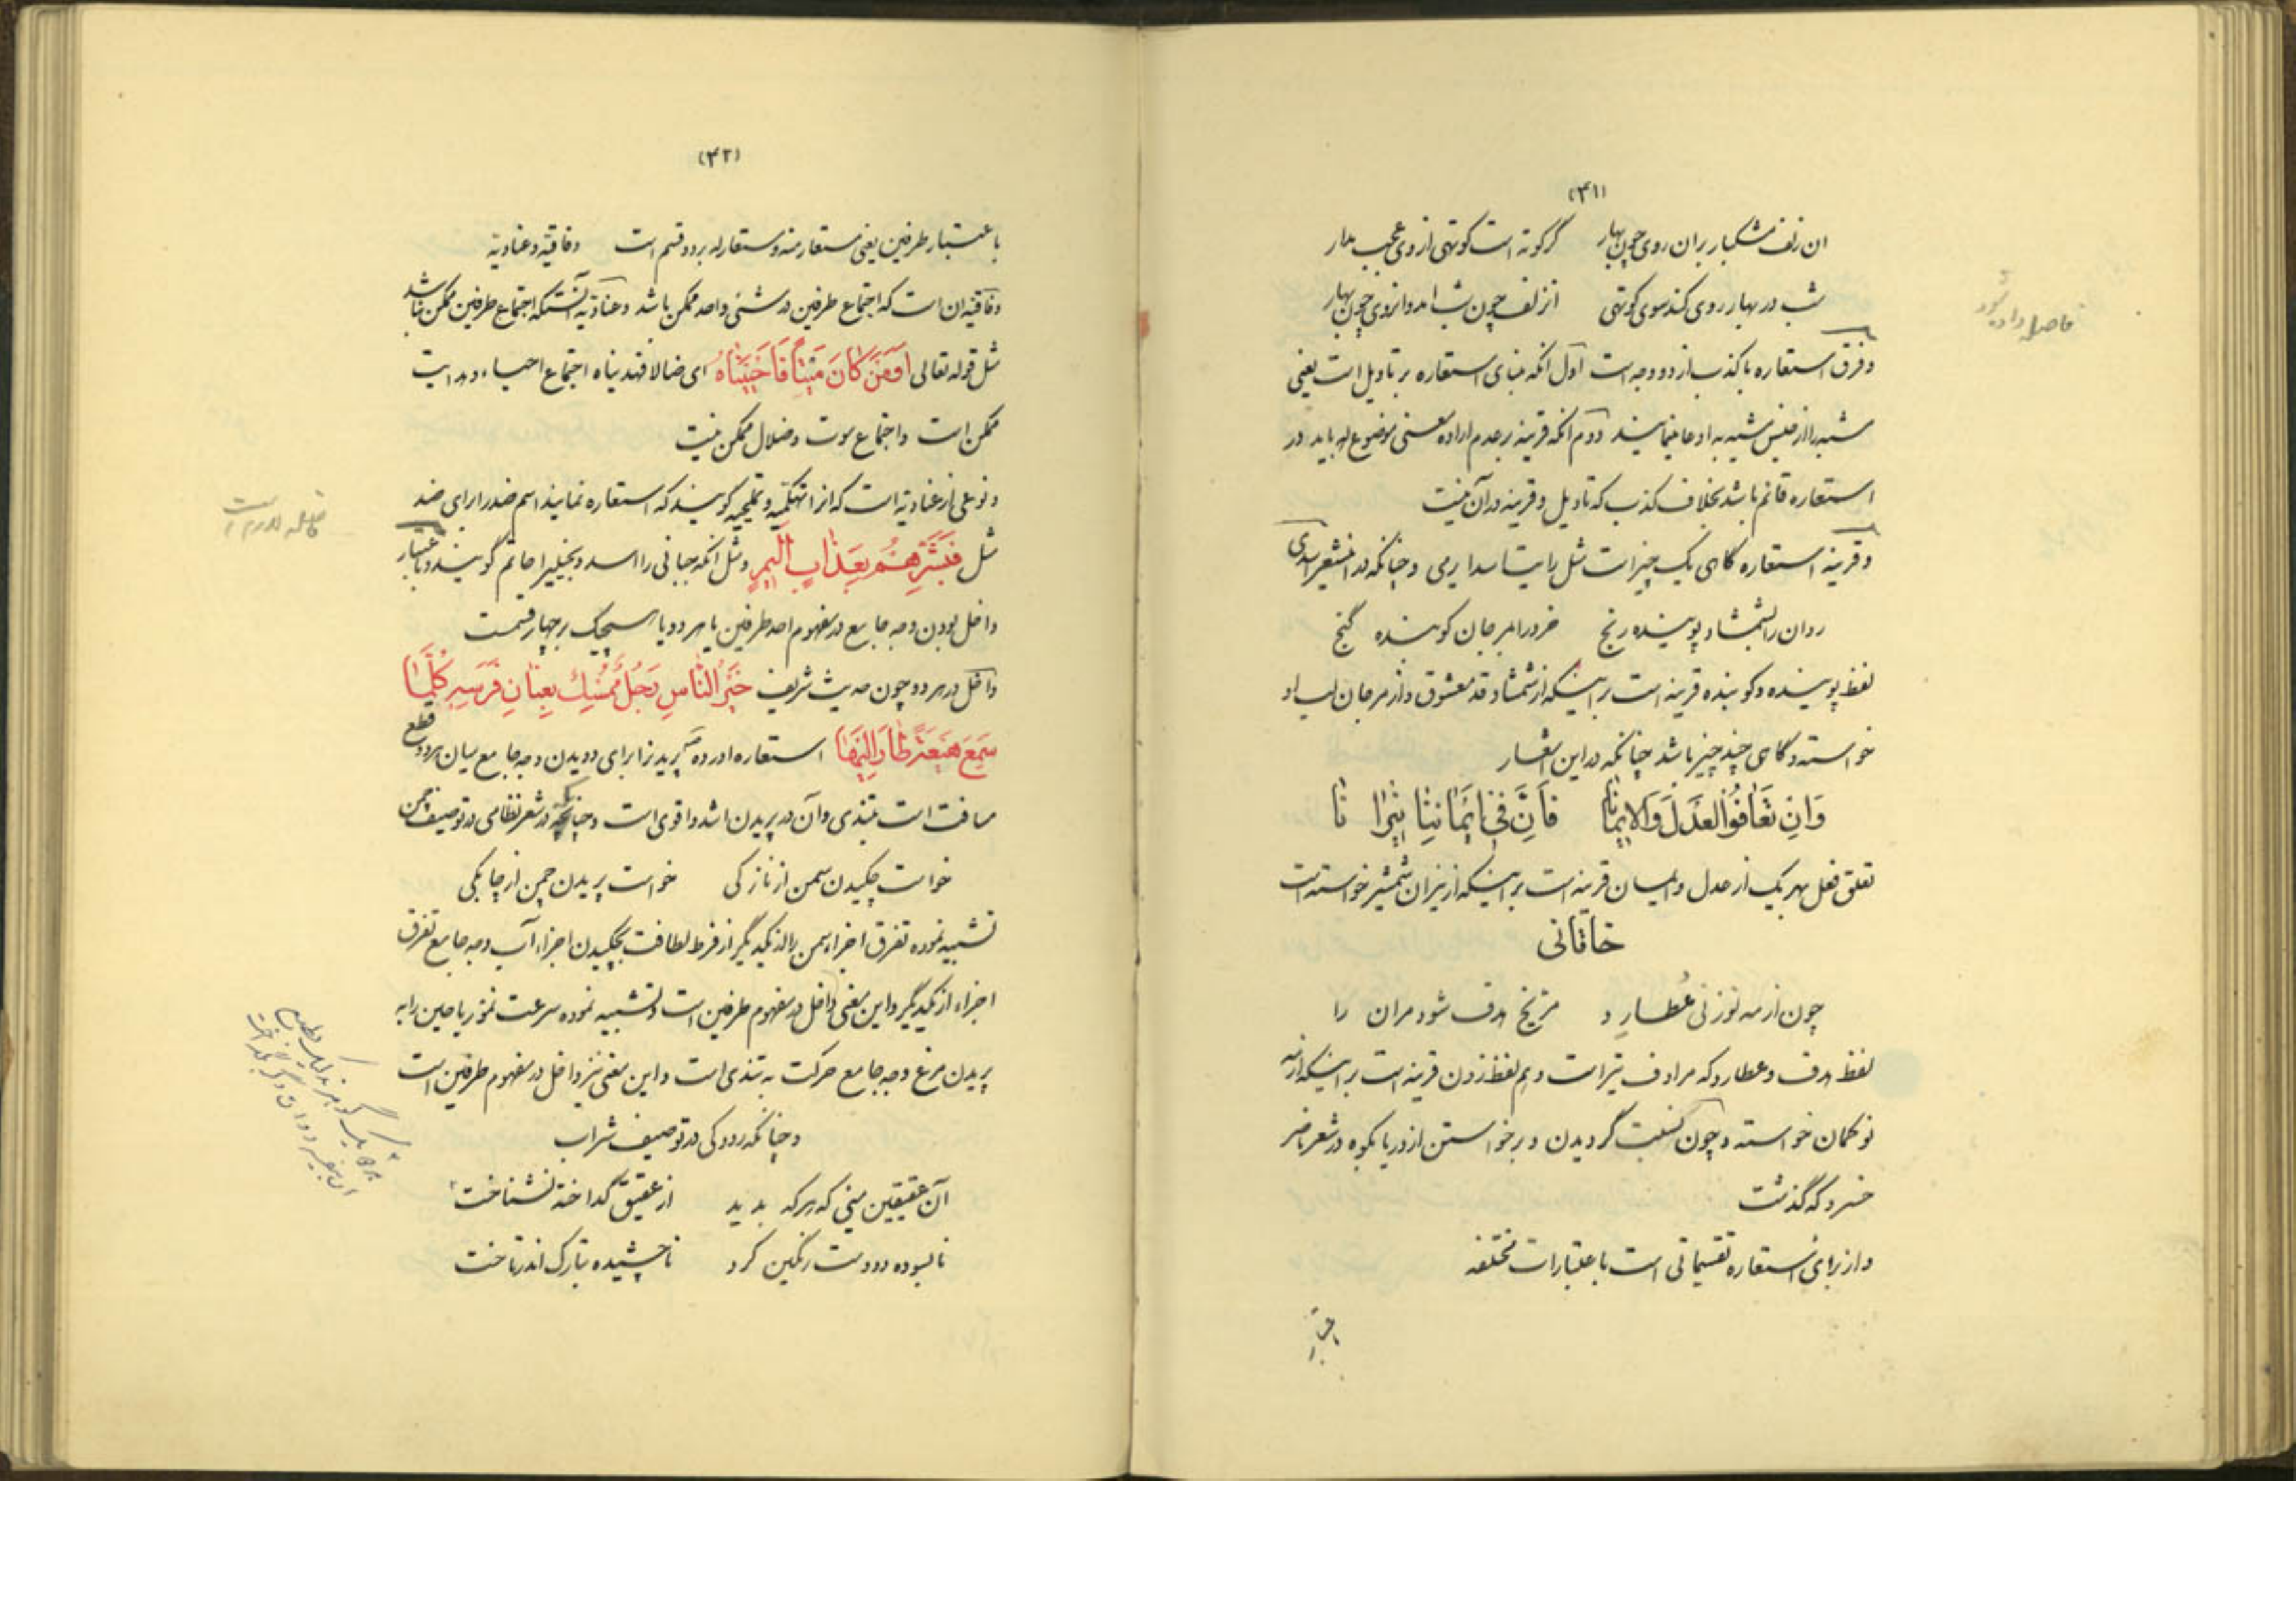 (۴۱)
ان زلف مشکبار بران روی چون بهار گر کوته است کوتهی از وی عجب مدار
شب در بهار روی کند سوی کوتهی ان زلف چون شب امد وانروی چون بهار
وفرق استعاره با کذب از دو وجه است اول آنکه بنای استعاره بر تاویل است یعنی
مشبه را از جنس مشبه به ادعا مینمایند دوم آنکه قرینه بر عدم اراده معنی موضوع له باید در
استعاره قائم باشد بخلاف کذب که تاویل و قرینه در آن نیست
وقرینه استعاره گاهی یک چیز است مثل رایت اسدا یرمی و چنانکه در اینشعر اسدی
روان را بشمشاد پوینده رنج خرد را بمرجان گوینده گنج
لفظ پوینده و گوینده قرینه است بر اینکه از شمشاد قد معشوق و از مرجان لب او
خواسته و گاهی چند چیز باشد چنانکه در این اشعار
وَانِ تَعَافُوُا العَدلَ وَالایمانا فَاَنَّ فی اَیمانِنا نیرانا
تعلق فعل بهر یک از عدل و ایمان قرینه است بر اینکه از نیران شمشیر خواسته است
خاقانی
چون از مه نو زنی عُطارِد مریخ هدف شود مران را
لفظ هدف و عطارد که مرادف تیر است و هم لفظ زدن قرینه است بر اینکه از مه
نو کمان خواسته و چون نسبت گردیدن و برخواستن از دریا بکوه در شعر ناصر
خسرو که گذشت
واز برای استعاره تقسیماتی است باعتبارات مختلفه
(۴۲)
باعتبار طرفین یعنی مستعار منه و مستعار له بر دو قسم است وفاقیه و عنادیه
وفاقیه ان است که اجتماع طرفین در شئی واحد ممکن باشد و عنادیه آنستکه اجتماع طرفین ممکن نباشد
مثل قوله تعالی اَوَمَنْ کانَ مَیْتاً فَاَحْیَیْناهُ ای ضالا فهدیناه اجتماع احیاء و هدایت
ممکن است و اجتماع موت و ضلال ممکن نیست
ونوعی از عنادیه است که انرا تهکمیه و تملیحیه گویند که استعاره نمایند اسم ضد را برای ضد
مثل فَبَشِّرْهُمْ بِعَذابٍ اَلیمٍ و مثل آنکه جبانی را اسد و بخیلیرا حاتم گویند و باعتبار
داخل بودن وجه جامع در مفهوم احد طرفین یا هر دو یا هیچیک بر چهار قسمت
داخل در هر دو چون حدیث شریف خَیْرُ النّاسِ رَجُلٌ مُمْسِكٌ بِعِنانِ فَرَسِهِ کُلَّما
سَمِعَ هَیْعَةً طارَ اِلَیْها استعاره اورده پریدنرا برای دویدن وجه جامع میان هر دو قطع
مسافت است بتندی و آن در پریدن اشد و اقوی است و چنانکه در شعر نظامی در توصیف چمن
خواست چکیدن سمن از نازکی خواست پریدن چمن از چابکی
تشبیه نموده تفرق اجزاء سمن را از یکدیگر از فرط لطافت بچکیدن اجزاء آب وجه جامع تفرق
اجزاء از یکدیگر و این معنی داخل در مفهوم طرفین است و تشبیه نموده سرعت نمو ریاحین را به
پریدن مرغ وجه جامع حرکت به تندی است و این معنی نیز داخل در مفهوم طرفین است
و چنانکه رودکی در توصیف شراب
آن عقیقین میی که هر که بدید از عقیق گداخته نشناخت
نابسوده دو دست رنگین کرد ناچشیده بتارک اندر تاخت